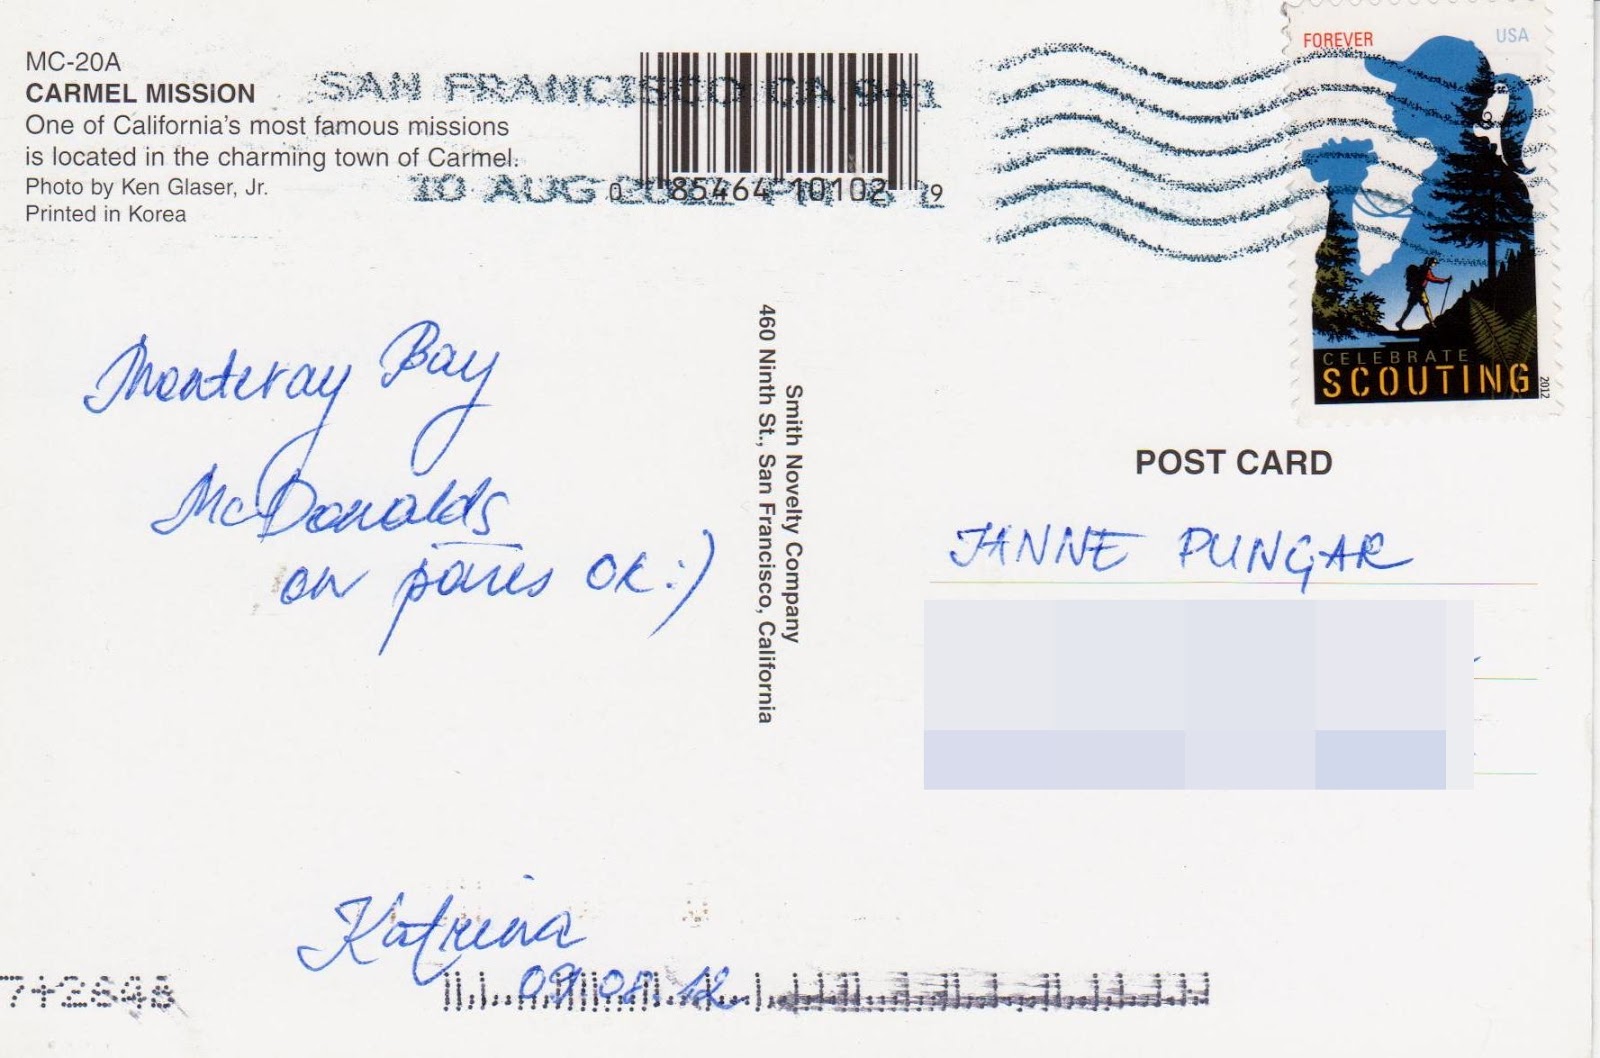 MC-20A
CARMEL MISSION
One of California's most famous missions
is located in the charming town of Carmel.
Photo by Ken Glaser, Jr.
Printed in Korea
SAN FRANCISCO CA 941
10 AUG
0 85464 10102 9
FOREVER USA
CELEBRATE
SCOUTING
2012
POST CARD
Monteray Bay
McDonalds
on päris OK :)
Katriina
09.08.12
Smith Novelty Company
460 Ninth St., San Francisco, California
JANNE PUNGAR